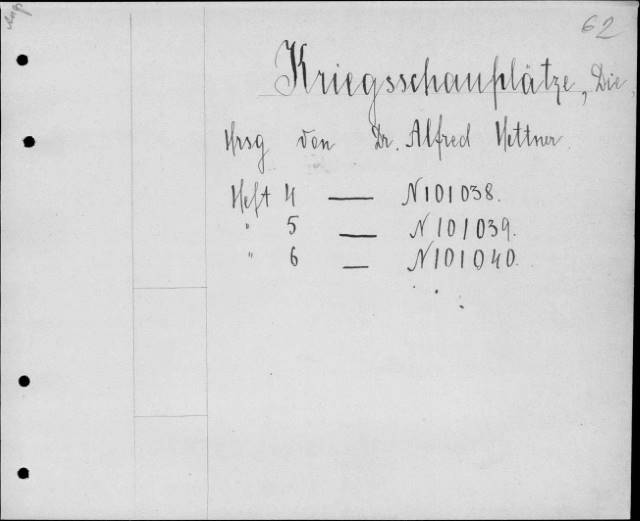 62
Kriegsschauplätze, Die
Hrsg von Dr. Alfred Hettner.
Heft 4 — N101038.
" 5 — N101039.
" 6 — N101040.